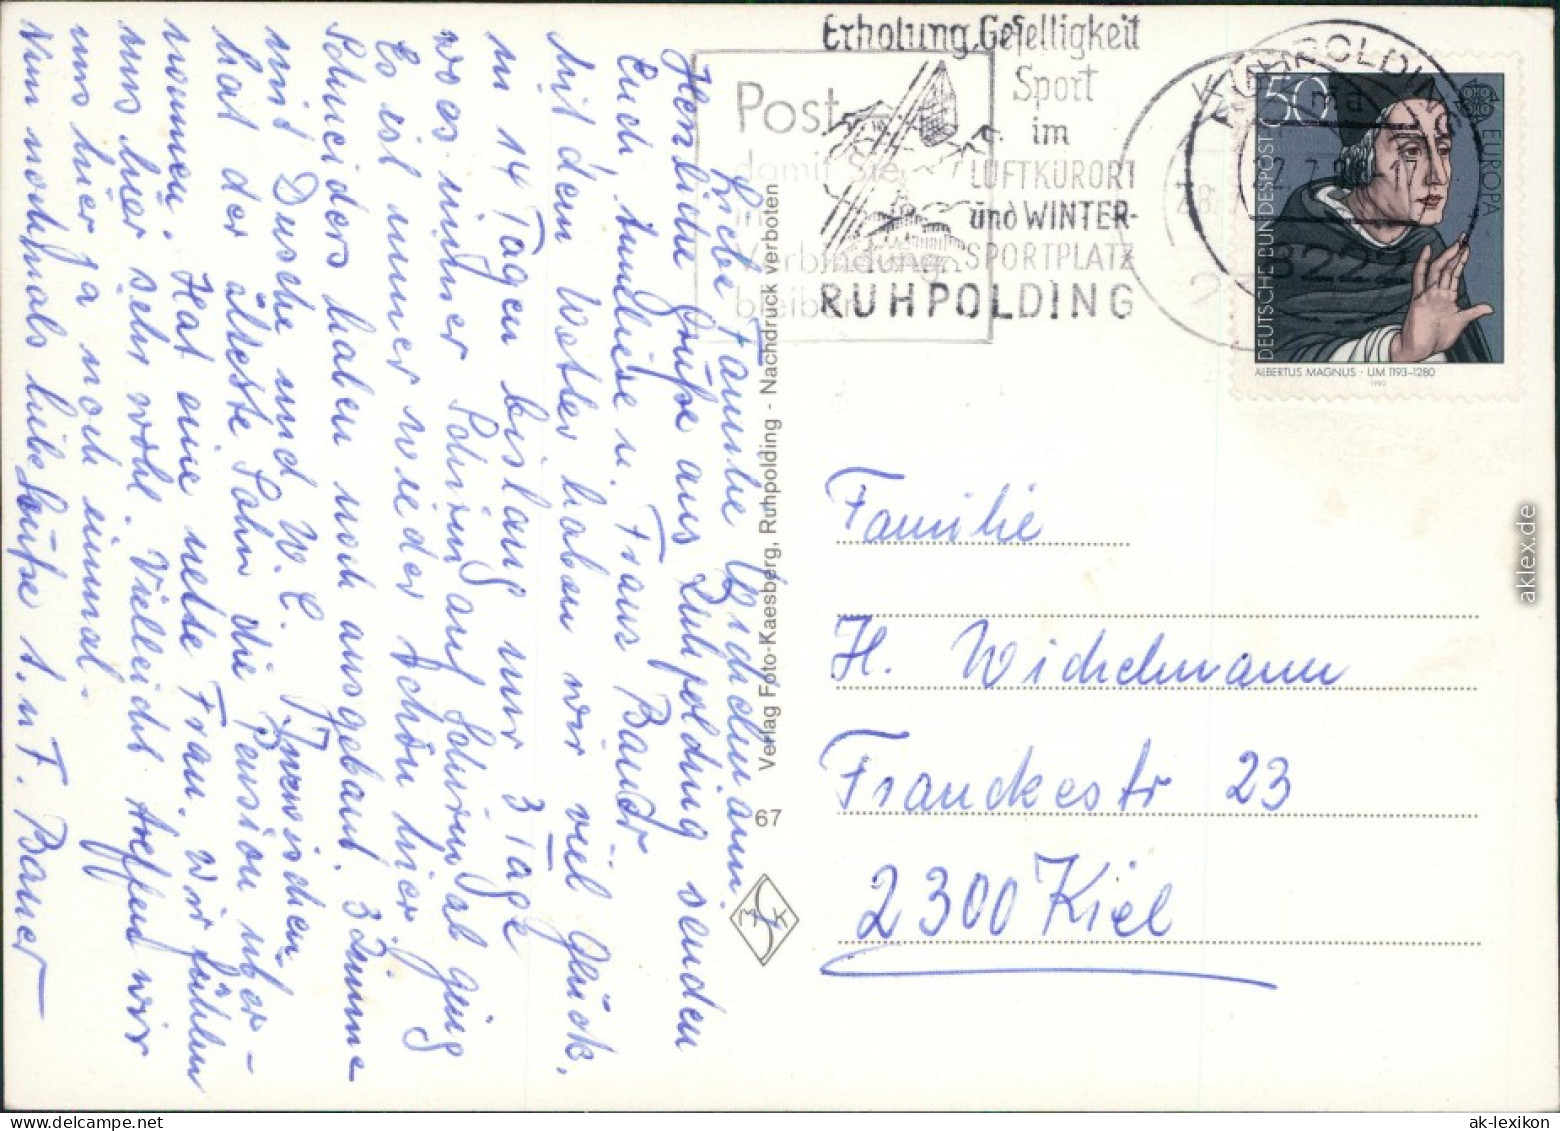 Liebe Familie Wichelmann
Herzliche Grüße aus Ruhpolding senden
Euch Anneliese u. Franz Bauer
Mit dem Wetter haben wir viel Glück.
in 14 Tagen bislang nur 3 Tage
wo es immer Schirm auf Schirm ab ging
Es ist immer wieder schön hier.
Schneiders haben noch ausgebaut. 3 Zimme
mit Dusche und W.C. Inzwischen
hat der älteste Sohn die Pension über-
nommen. Hat eine nette Frau. Wir fühlen
uns hier sehr wohl. Vielleicht treffen wir
uns hier ja noch einmal.
Nun nochmals liebe Grüße A. u F. Bauer
Verlag Foto-Kaesberg, Ruhpolding - Nachdruck verboten
67
M K
Erholung, Geselligkeit
Sport
im
LUFTKURORT
und WINTER-
SPORTPLATZ
RUHPOLDING
Post
damit Sie
in
Verbindung
bleiben
RUHPOLDING
8222
50
EUROPA
DEUTSCHE BUNDESPOST
ALBERTUS MAGNUS · UM 1193–1280
1980
Familie
H. Wichelmann
Franckestr 23
2300 Kiel
aklex.de
ak-lexikon
www.delcampe.net